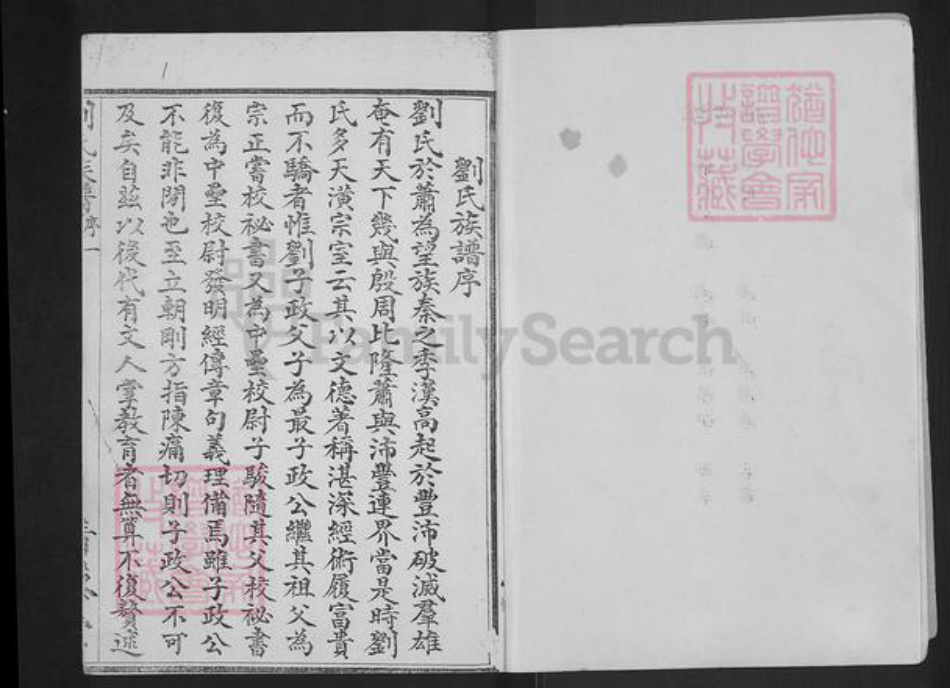 劉氏族譜序
劉氏於蕭為望族秦之季漢高起於豐沛破滅羣雄
奄有天下幾與殷周比隆蕭與沛豐連界當是時劉
氏多天潢宗室云其以文德著稱湛深經術履富貴
而不驕者惟劉子政父子為最子政公繼其祖父為
宗正嘗校祕書又為中壘校尉子駿隨其父校祕書
復為中壘校尉發明經傳章句義理備焉雖子政公
不能非閒也至立朝剛方指陳痛切則子政公不可
及矣自茲以後代有文人掌教育者無算不復贅述
劉氏族譜 序 一
猶他家
譜學會
收藏
FamilySearch